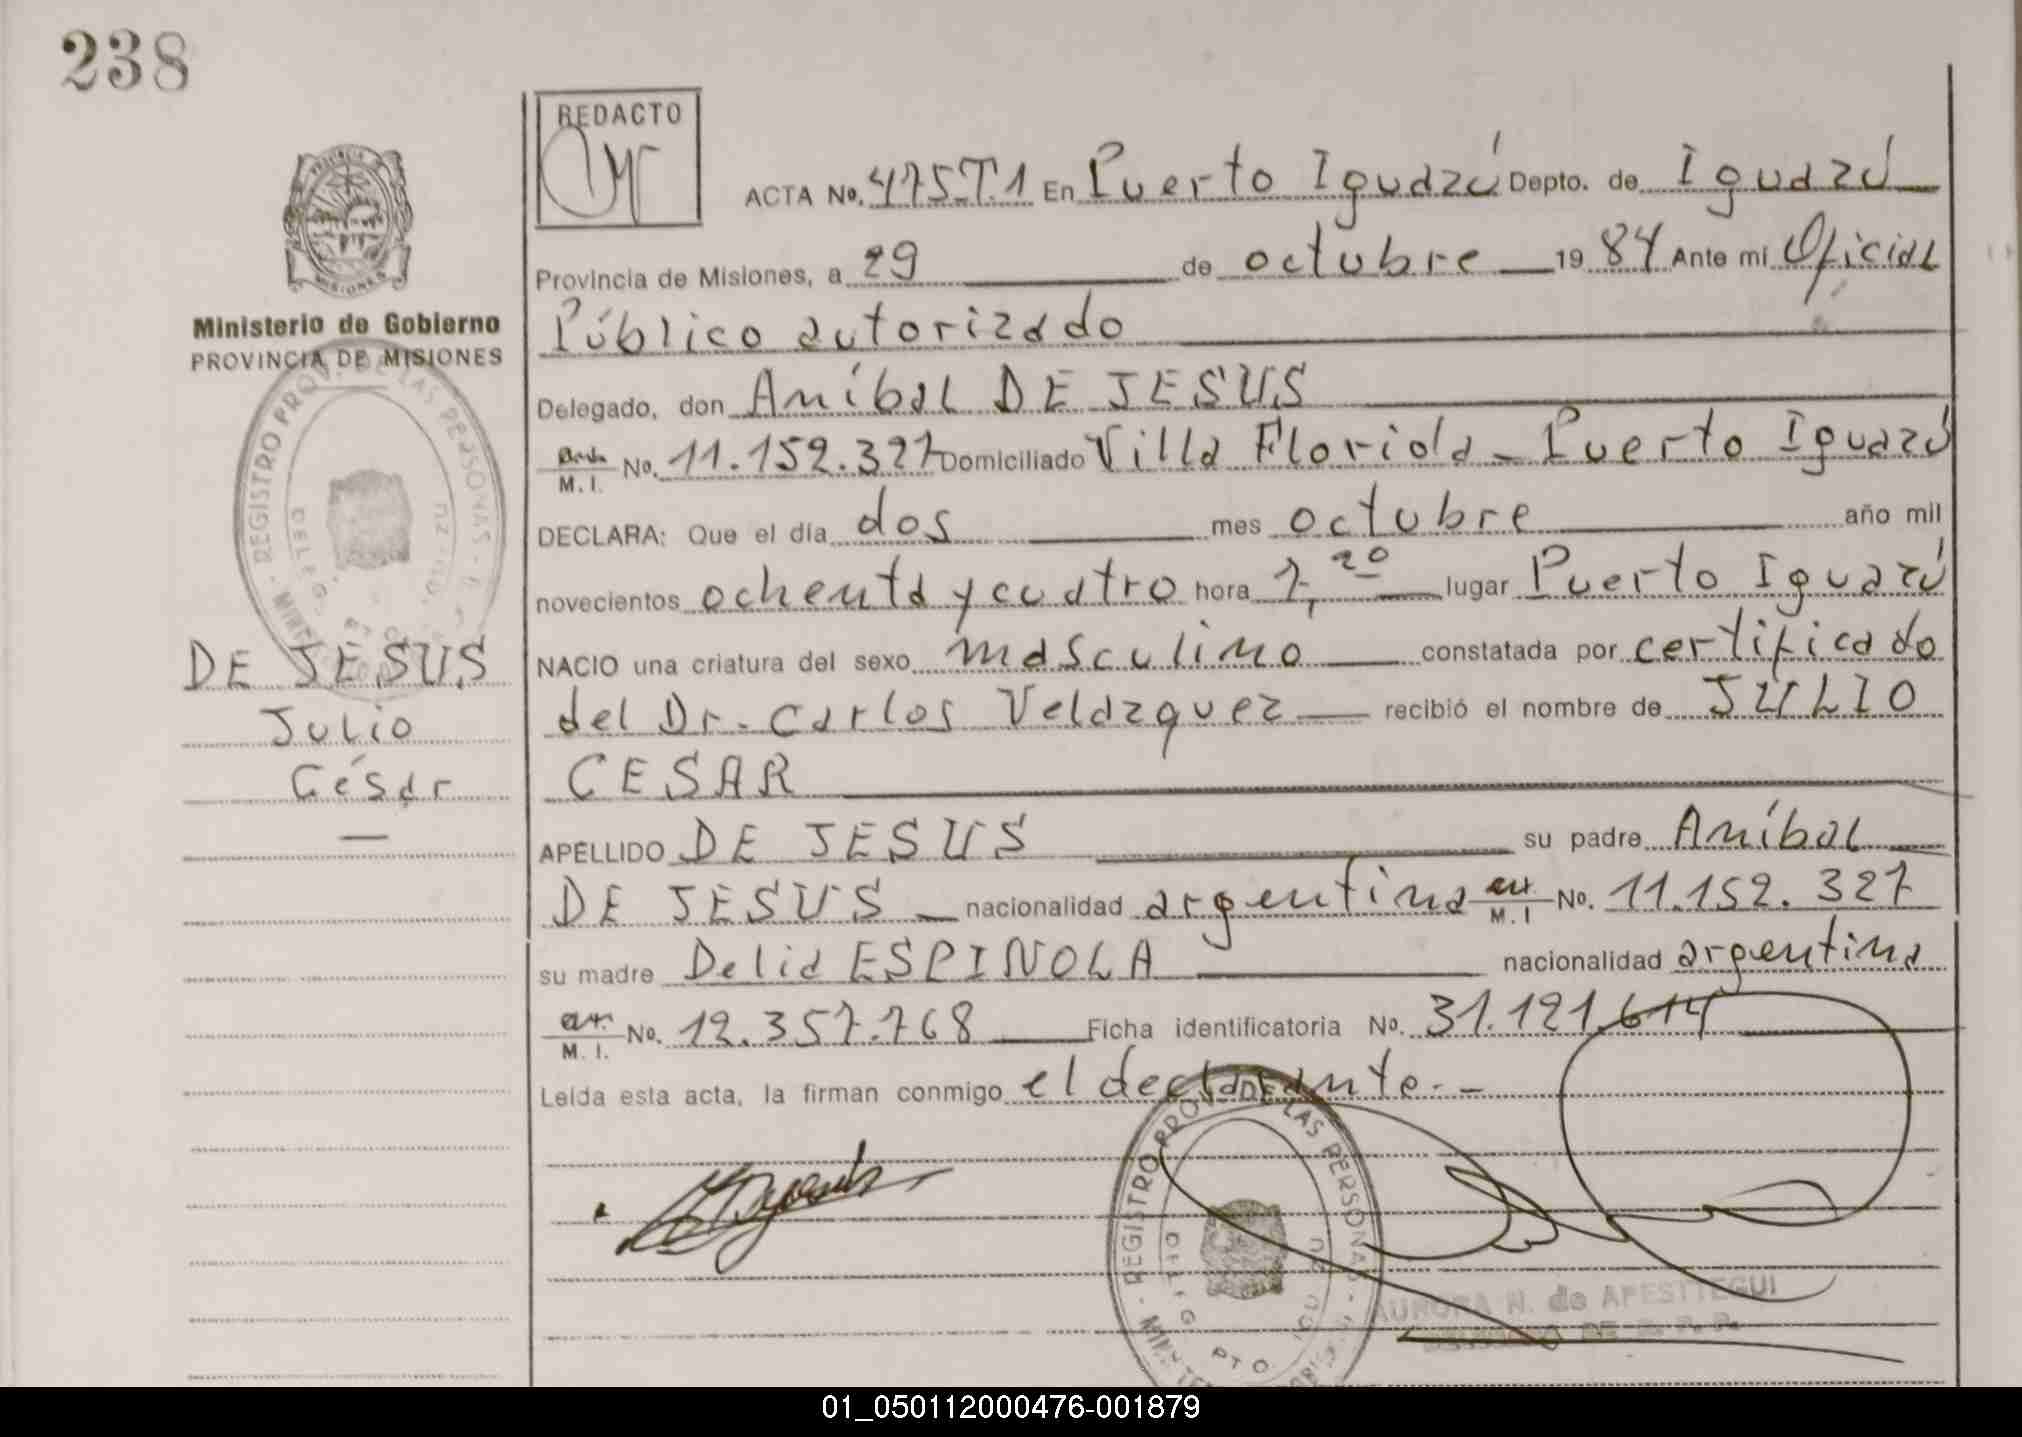 238
REDACTO
ACTA No. 475T.1 En Puerto Iguazú Depto. de Iguazú
Provincia de Misiones, a 29 de octubre 1984 Ante mi Oficial
Ministerio de Gobierno
PROVINCIA DE MISIONES
Público autorizado
Delegado, don Aníbal DE JESUS
M. I. No. 11.152.327 Domiciliado Villa Florida - Puerto Iguazú
DECLARA: Que el día dos mes octubre año mil
novecientos ochenta y cuatro hora 7,20 lugar Puerto Iguazú
NACIO una criatura del sexo masculino constatada por certificado
DE JESUS
Julio
César
del Dr. Carlos Velazquez recibió el nombre de JULIO
CESAR
APELLIDO DE JESUS su padre Aníbal
DE JESUS nacionalidad argentina M. I No. 11.152.327
su madre Delia ESPINOLA nacionalidad argentina
M. I. No. 12.357.768 Ficha identificatoria No. 31.121.614
Leída esta acta, la firman conmigo el declarante.-
REGISTRO PROV. DE LAS PERSONAS
AURORA N. de APESTEGUI
01_050112000476-001879